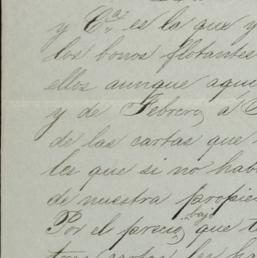 y C.ª es la que y
los bonos flotantes
ellos aunque aqu
y de Febrero, a
de las cartas que
les que si no hab
de nuestra propie
bajo
Por el precio, que t